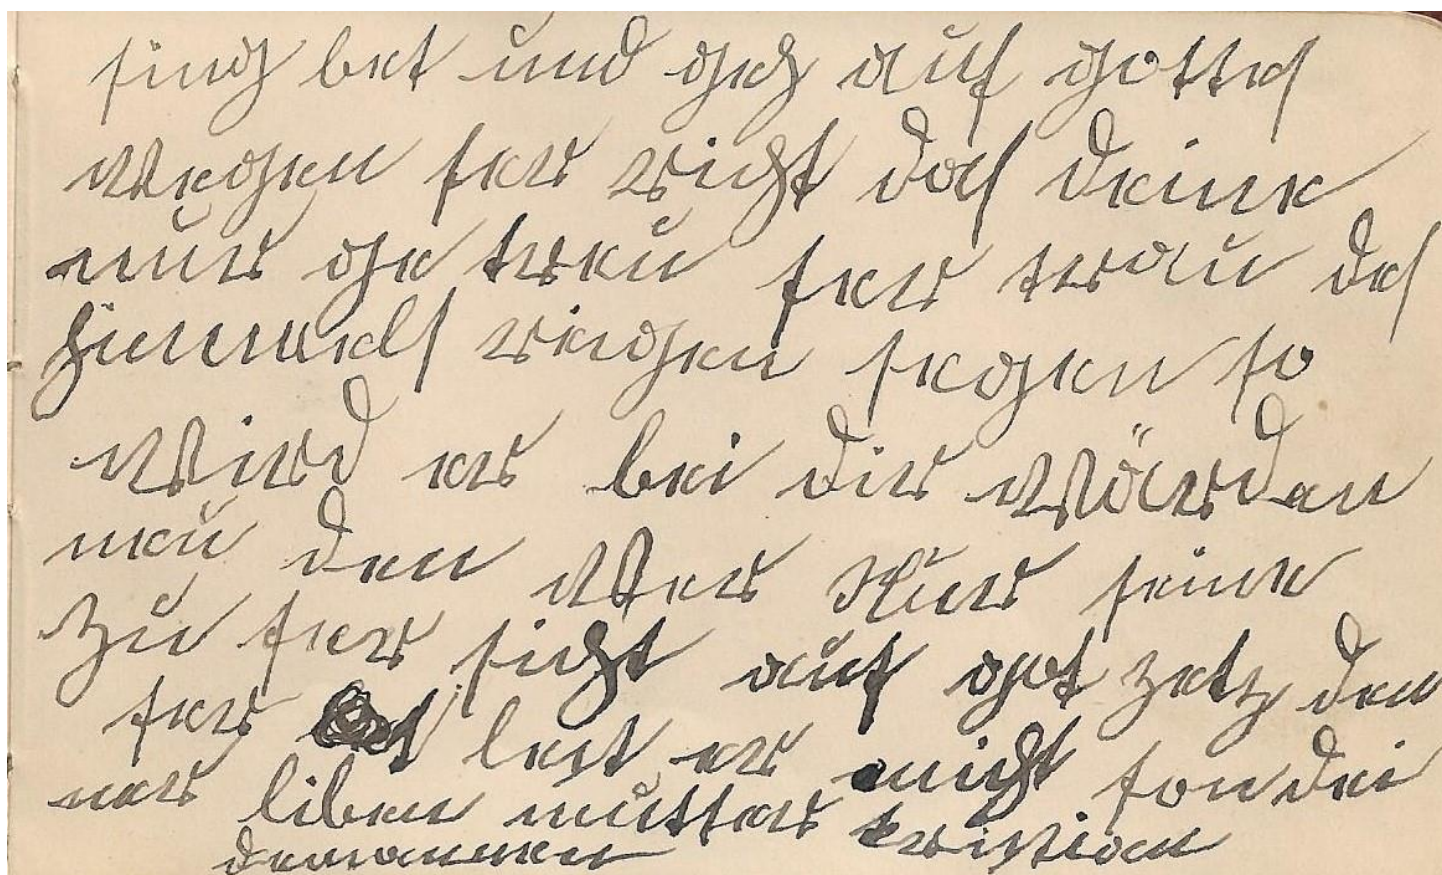 sing bet und geh auf gottes
wegen fer richt das deine
nur ge treu fer trau des
himmels reigen segen so
wird er bei dir wärden
neu den wer Nur seine
zu fer sicht auf got zetz den
fer lest er nicht fon dei
ner liben mutter kristian